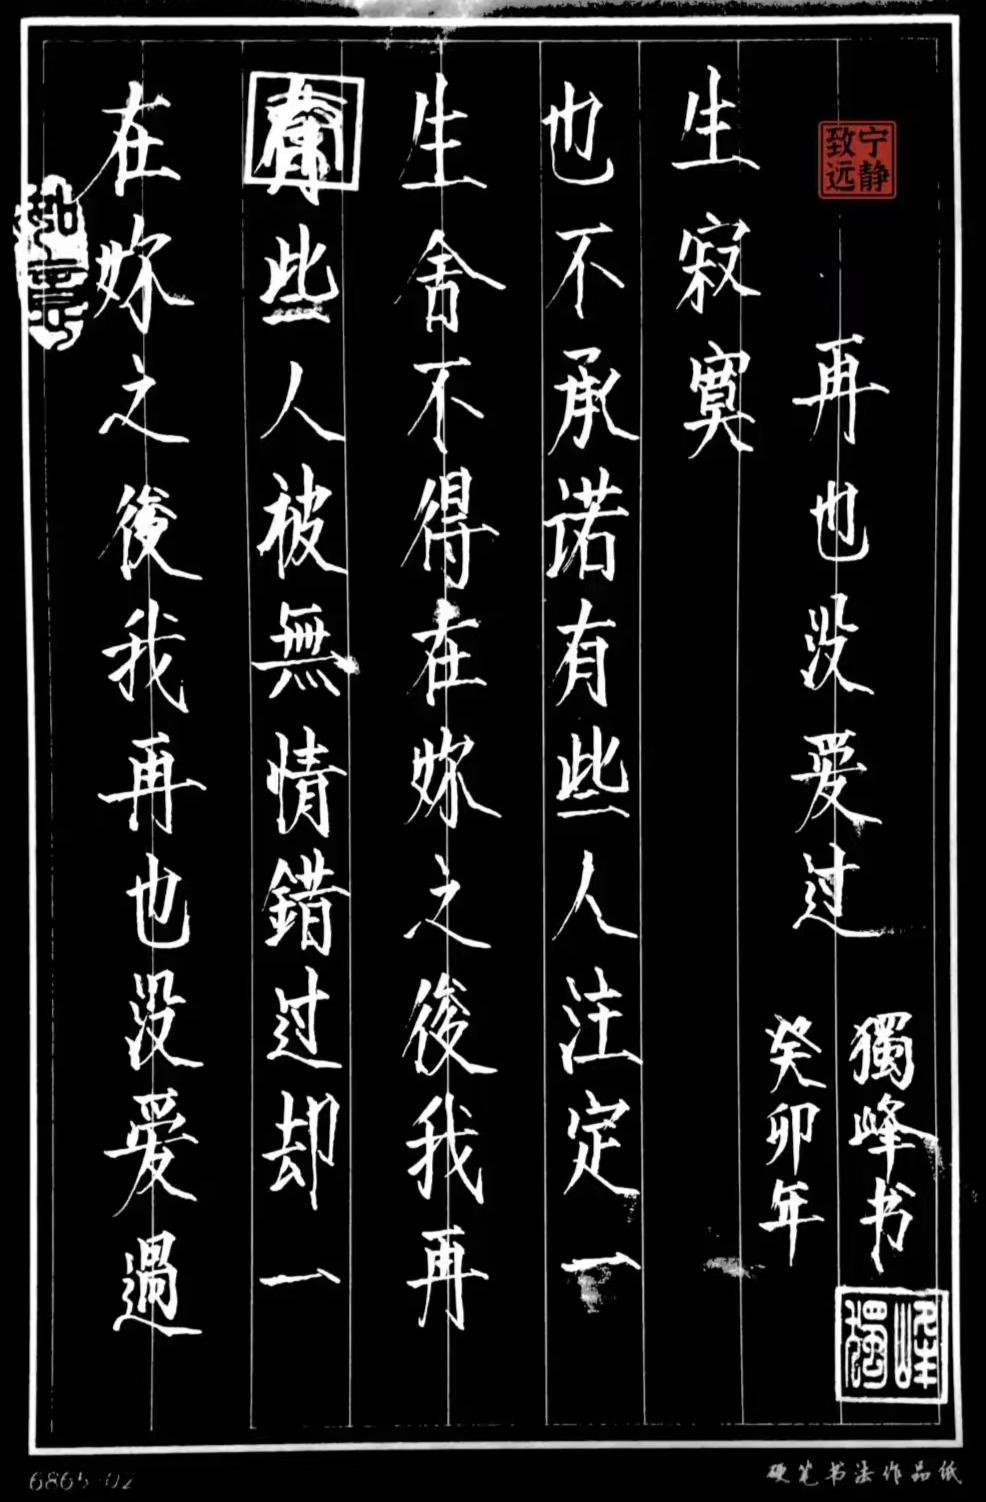 在妳之後我再也没爱過
有些人被無情錯过却一
生舍不得在妳之後我再
也不承诺有些人注定一
生寂寞
再也没爱过
癸卯年
獨峰书
宁静致远
獨峰
6865-02
硬笔书法作品纸